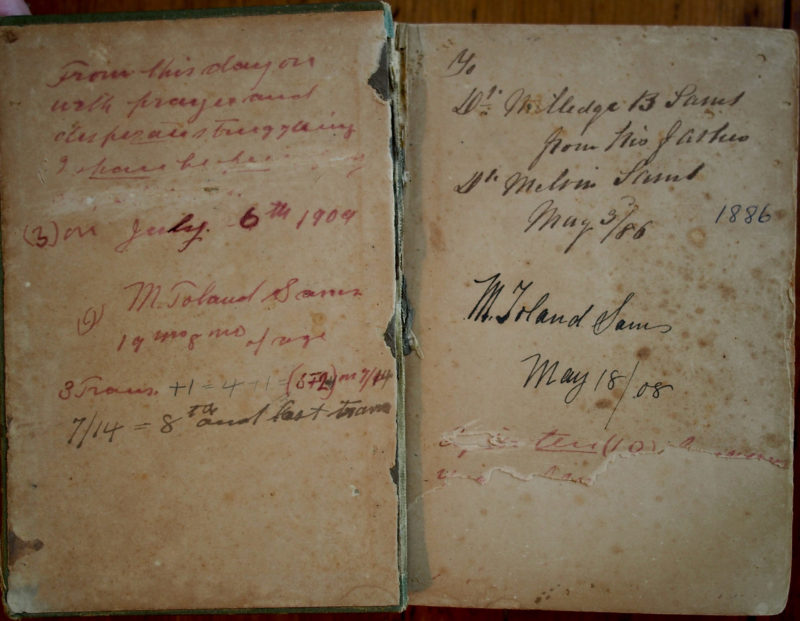 From this day on
with prayer and
desperate struggling
I shall be
(3) on July 6th 1909
M. Toland Sams
19 8 mo of age
3 Trans. +1 = 4 +1 = on 7/14
7/14 = 8th and last trans
To
Dr Milledge B Sams
from his father
Dr Melvin Sams
May 3/86 1886
M. Toland Sams
May 18/08
ten (10)